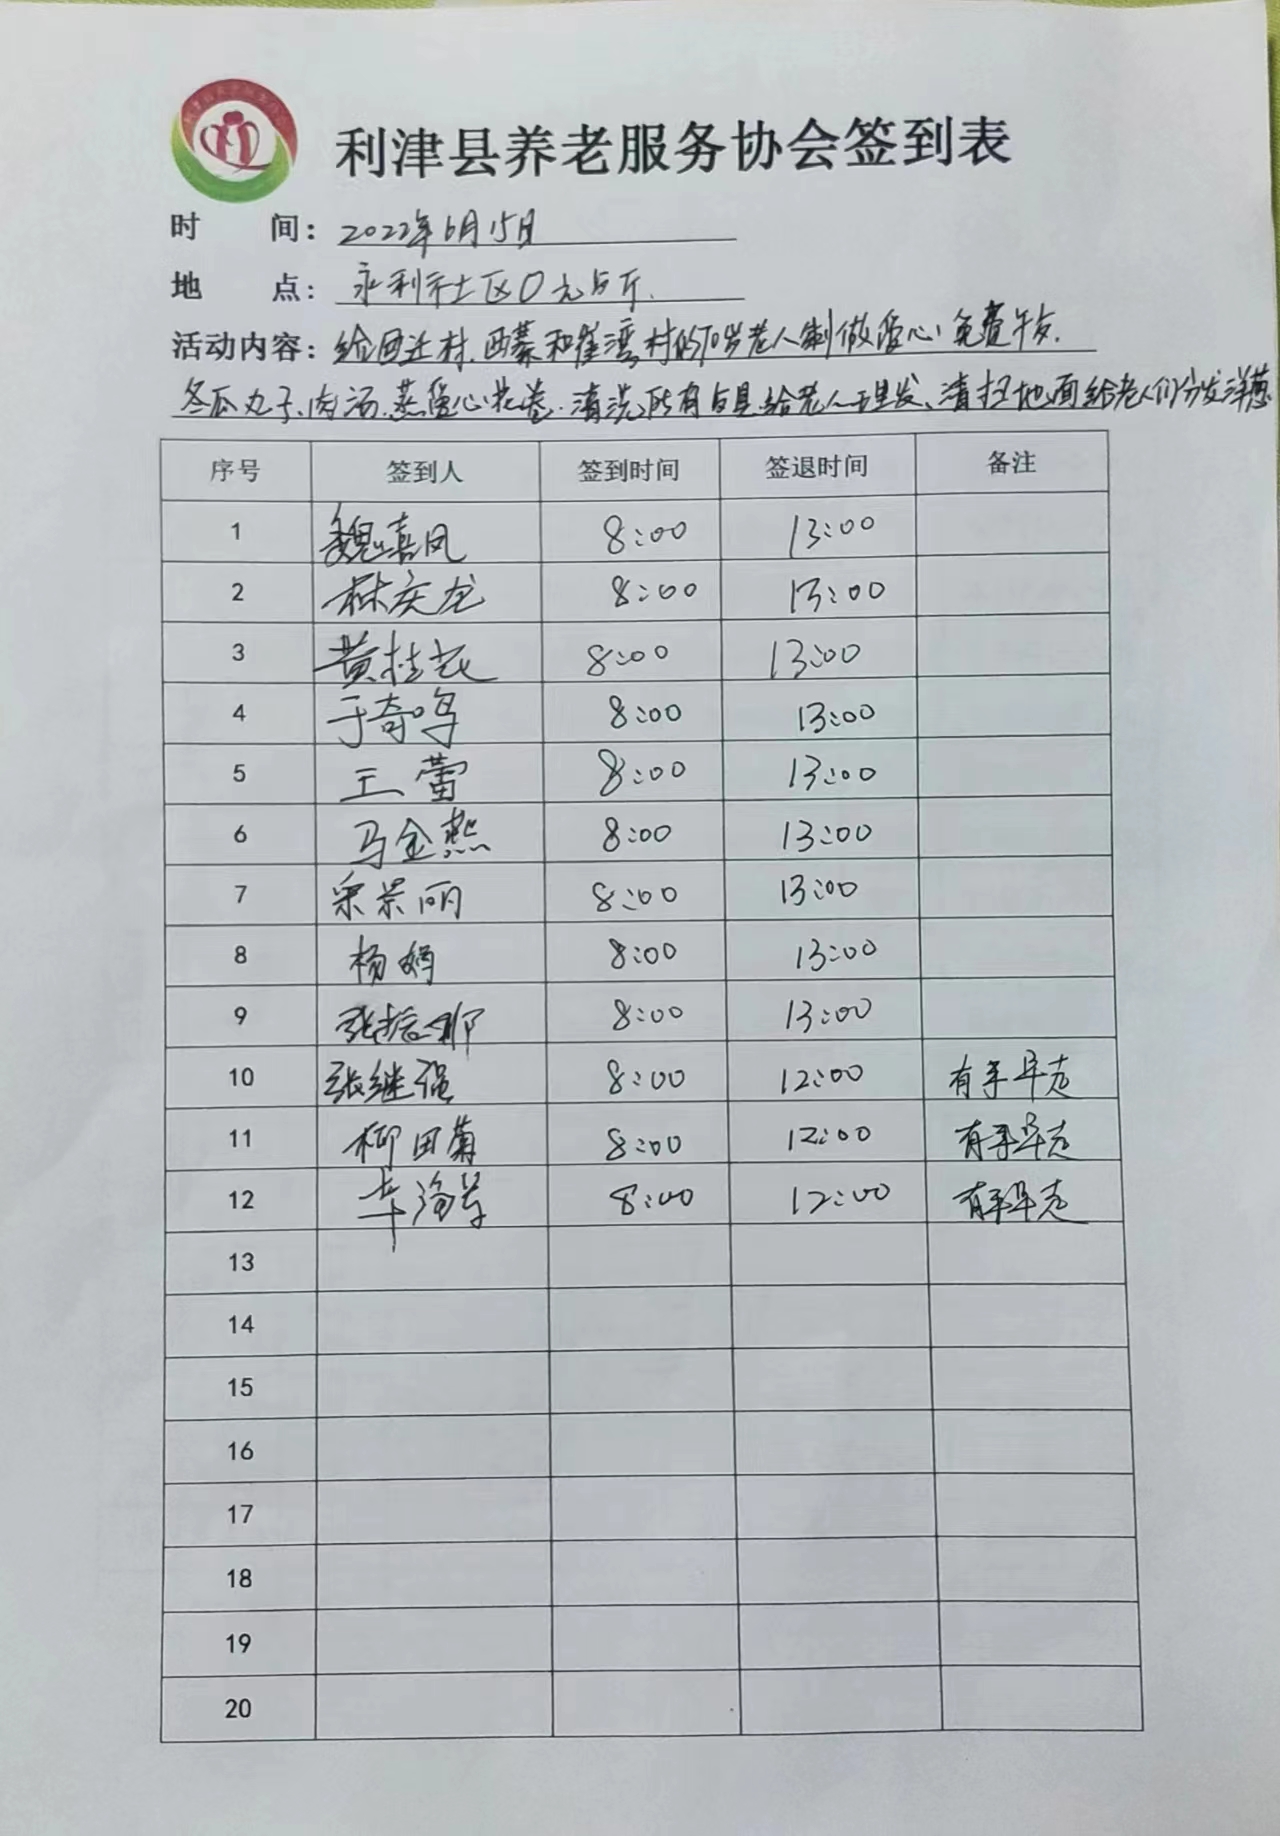 利津县养老服务协会签到表
时 间：2022年6月15日
地 点：永利社区0元食厅.
活动内容：给回迁村.西寨和崔湾村的70岁老人制做爱心免费午友.
冬瓜丸子.肉汤.蒸爱心花卷.清洗所有白具.给老人理发、清扫地面给老人们分发洋葱
序号 签到人 签到时间 签退时间 备注
1 魏嘉凤 8:00 13:00
2 林庆龙 8:00 13:00
3 黄桂花 8:00 13:00
4 于奇鸣 8:00 13:00
5 王蕾 8:00 13:00
6 马金燕 8:00 13:00
7 景丽 8:00 13:00
8 杨娟 8:00 13:00
9 张 8:00 13:00
10 张继强 8:00 12:00 有事早走
11 柳田菊 8:00 12:00 有事早走
12 海 8:00 12:00 有事早走
13
14
15
16
17
18
19
20